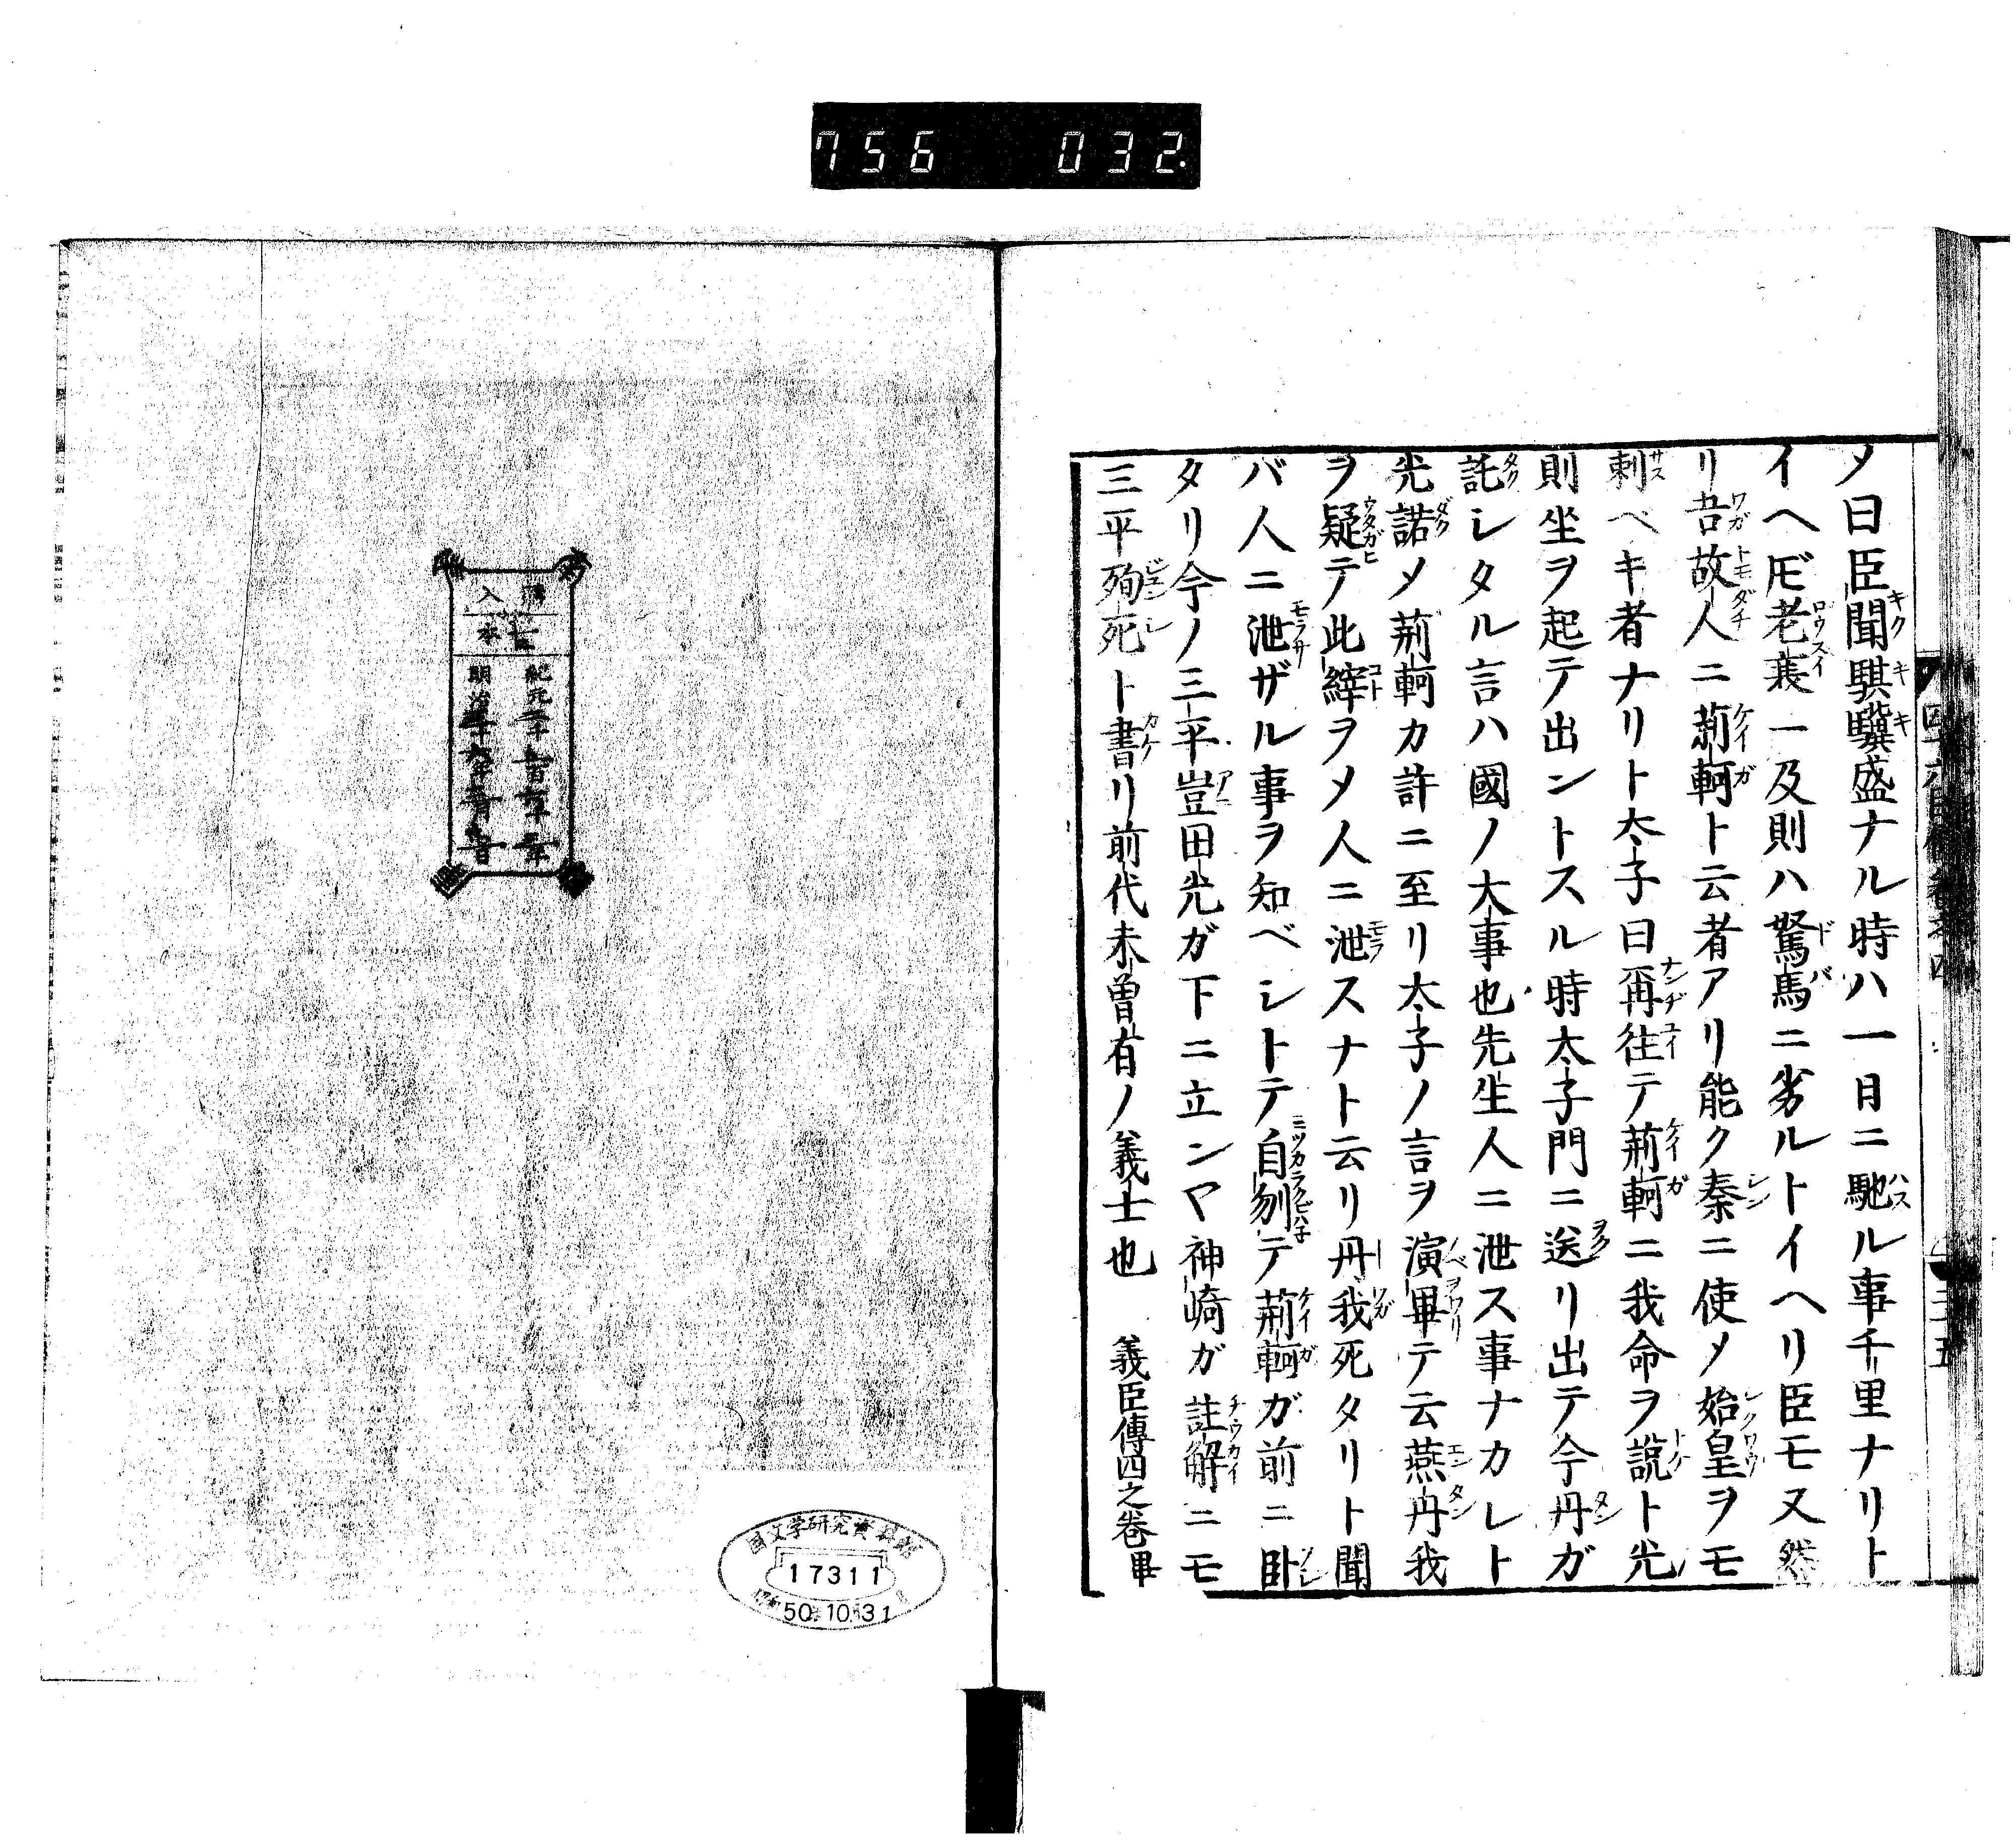 756 032
メ曰臣聞騏驥盛ナル時ハ一日ニ馳ル事千里ナリト
イヘ𪜈老衰一及則ハ駑馬ニ劣ルトイヘリ臣モ又然
リ吾故人ニ荊軻ト云者アリ能ク秦ニ使メ始皇ヲモ
刺ベキ者ナリト太子曰再往テ荊軻ニ我命ヲ説ト光
則坐ヲ起テ出ントスル時太子門ニ送リ出テ今丹ガ
託シタル言ハ國ノ大事也先生人ニ泄ス事ナカレト
光諾メ荊軻カ許ニ至リ太子ノ言ヲ演畢テ云燕丹我
ヲ疑テ此縡ヲメ人ニ泄スナト云リ丹我死タリト聞
バ人ニ泄ザル事ヲ知ベシトテ自刎テ荊軻ガ前ニ臥
タリ今ノ三平豈田光ガ下ニ立ンヤ神崎ガ註解ニモ
三平殉死ト書リ前代未曽有ノ義士也 義臣傳四之巻畢
三五
入
本
紀元
明治
国文学研究資料館
17311
50.10.31